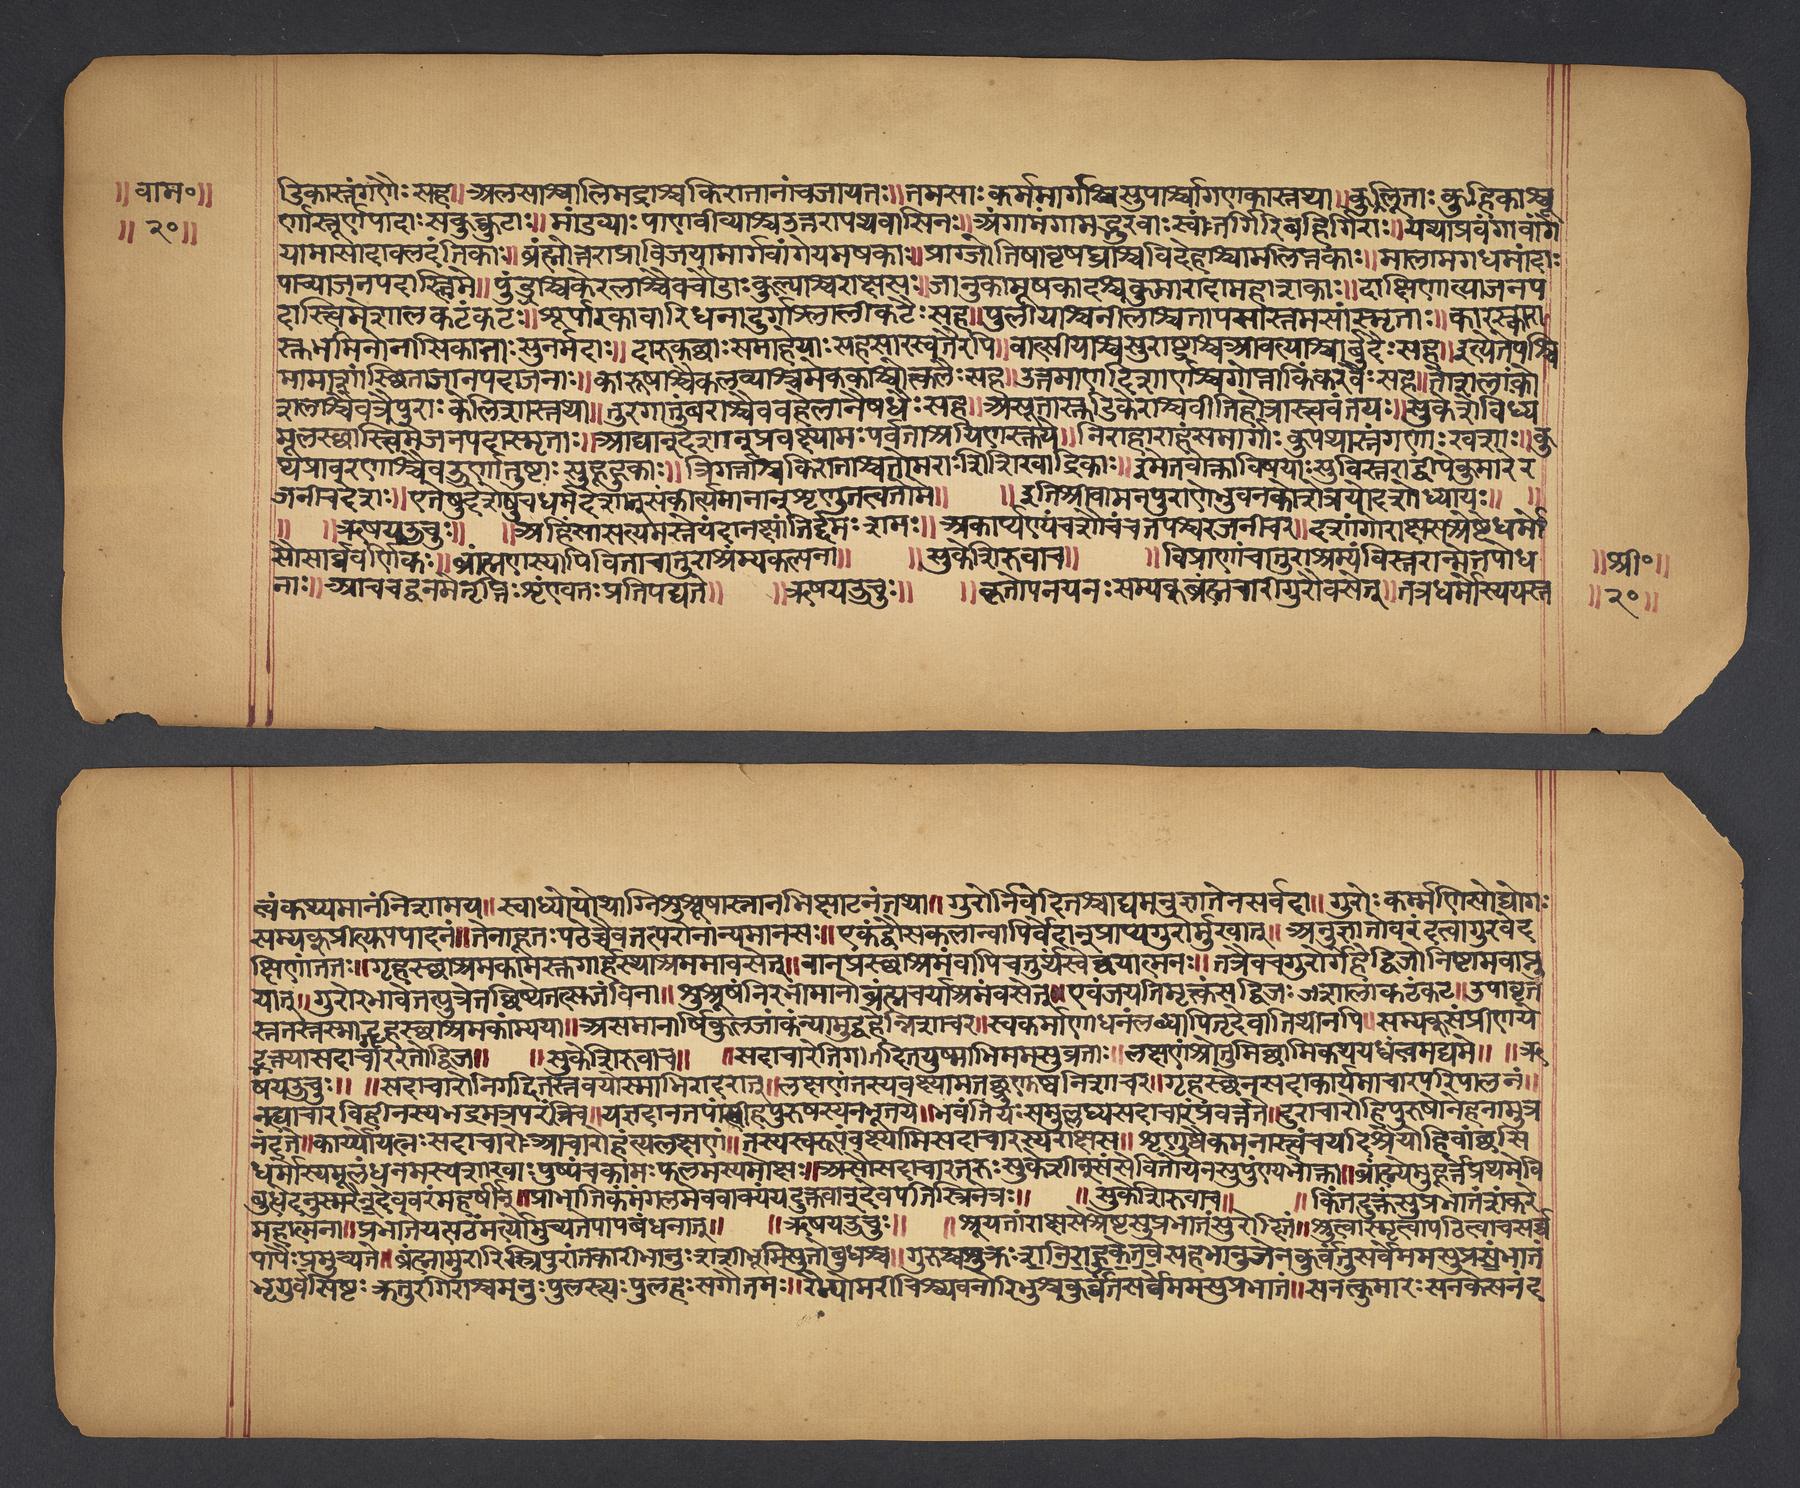 ॥वाम॰॥
॥२०॥
द्रिकास्तंगणैः सह॥अलसाश्चालिमद्राश्चकिरातानांचजायतः॥तमसाः क्रममार्गाश्चसुपार्श्वागणकास्तथा॥कुलूताः कुहिकाश्च
र्णास्तूर्णपादाः सकुक्कुटाः॥मांडव्याः पाणवीव्याश्चउत्तरापथवासिनः॥अंगामगामद्गुरवाः स्वांतर्गिरिबहिर्गिराः॥
पाच्याजनपदास्त्विमे॥पुंड्राश्चकेरलाश्चैवचौडाः कुल्याश्चराक्षस॥जानुकामूषकादश्चकुमारादामहाराकाः॥दाक्षिणात्याजनप
दास्त्विमेशालकटंकट॥शूर्पारकावारिधनादुर्गाश्चालीकटैः सह॥पुलीयाश्चनीलाश्चतापसास्तमसाःस्मृताः॥कारस्करा
वात्सीयाश्चसुराष्ट्राश्चआवंत्याश्चार्बुदैः सह॥इत्येतेपश्चि
मामाशांस्थिताजानपदाजनाः॥कारूषाश्चैकलव्याश्चमेकलाश्चोत्कलैः सह॥उत्तमार्णादशार्णाश्चगोप्ताकिंकरवैः सह॥
शलाश्चैवत्रैपुराः कैलिशास्तथा॥तुरगातुंबराश्चैवबहेलानैषधैः सह॥
मूलस्थास्त्विमेजनपदास्मृताः॥आद्यानूदेशान्प्रवक्ष्यामः पर्वताश्रयिणस्तथे॥निराहाराहंसमार्गाः कुपथास्तंगणाः खशाः॥कु
थप्रावरणाश्चैवऊर्णातुष्टाः सुहूहुकाः॥त्रिगर्त्ताश्चकिराताश्चतोमराः शिशिखाद्रिकाः॥इमेतवोक्ताविषयाः सुविस्तराद्द्वीपेकुमारेर
जनीचदेशाः॥एतेषुदेशेषुचधर्मदेशान्संकीर्त्यमानान्शृणुतत्वतोमे॥ ॥इतिश्रीवामनपुराणेभुवनकोशेत्रयोदशोध्यायः॥ ॥
॥ ॥ऋषयऊचुः॥ ॥अहिंसासत्यमस्तेयंदानंक्षांतिर्द्दमः शमः॥अकार्पण्यंचशौचंचतपश्चरजनीचर॥दशांगोराक्षसश्रेष्ठधर्मो
सौसार्ववर्णिकः॥ब्राह्मणस्यापिविहिताचातुराश्रम्यकल्पना॥ ॥सुकेशिरुवाच॥ ॥विप्राणांचातुराश्रम्यंविस्तरान्मेतपोध
नाः॥आचक्षध्वंनमेतृप्तिः शृण्वतः प्रतिपद्यते॥ ॥ऋषयऊचुः॥ ॥कृतोपनयनः सम्यक्ब्रह्मचारीगुरौवसेत्॥तत्रधर्मोस्ययस्त
॥श्री॰॥
॥२०॥
त्वंकथ्यमानंनिशामय॥स्वाध्यायोथाग्निशुश्रूषास्नानभिक्षाटनंतथा॥गुरोर्निवेदितश्चाद्यमनुज्ञातेनसर्वदा॥गुरोः कर्म्मणिसोद्योगः
सम्यक्प्रीत्युपपादनं॥तेनाहूतः पठेच्चैवतत्परोनान्यमानसः॥एकंद्वौसकलान्वापिवेदान्प्राप्यगुरोर्मुखात्॥अनुज्ञातोवरंदत्वागुरवेद
क्षिणांततः॥गृहस्थाश्रमकामस्तुगार्हस्थ्याश्रममावसेत्॥वानप्रस्थाश्रमंवापिचतुर्थंस्वेच्छयात्मनः॥तत्रैवचगुरोर्गेहेद्विजोनिष्ठामवाप्नु
यात्॥गुरोरभावेतत्पुत्रेतच्छिष्येतत्सुतंविना॥शुश्रूषंनिरभीमानोब्रह्मचर्याश्रमंवसेत्॥एवंजयतिमृत्युंसद्विजः शालंकटंकट॥उपावृत्त
स्ततस्तस्माद्गृहस्थाश्रमकाम्यया॥असमानार्षिकुलजांकंन्यामुद्वहेन्निशाचर॥स्वकर्मणाधनंलब्ध्वापितृदेवातिथीनपि॥सम्यक्संप्रीणये
द्भक्त्यासदाचाररतोद्विज॥ ॥सुकेशिरुवाच॥ ॥सदाचारेतिगदितयुष्माभिर्ममसुव्रताः॥लक्षणंश्रोतुमिच्छामिकथयध्वंत्वमद्यमे॥ ॥ऋ
षयऊचुः॥ ॥सदाचारोनिगदितस्तवयोस्माभिरादरात्॥लक्षणंतस्यवक्ष्यामतच्छृणुष्वनिशाचर॥गृहस्थेनसदाकार्यमाचारपरिपालनं॥
नह्याचारविहीनस्यभद्रमत्रपरत्रच॥यज्ञदानतपांसीहपुरुषस्यनभूतये॥भवंतियः समुल्लंघ्यसदाचारंप्रवर्त्तते॥दुराचारोहिपुरुषोनेहनामुत्र
नंदते॥कार्य्योयत्नः सदाचारोआचारोहंत्यलक्षणं॥तस्यस्वरूपंवक्ष्यामिसदाचारस्यराक्षस॥शृणुष्वैकमनास्त्वंचयदिश्रेयोहिवांच्छसि
धर्मोस्यमूलंधनमस्यशाखाः पुष्पंचकामः फलमस्यमोक्षः॥असौसदाचारतरुः सुकेशीन्संसेवितोयेनसुपुंण्यभोक्ता॥ब्राह्म्येमुहूर्त्तेप्रथमंवि
बुध्येदनुस्मरेत्देववरंमहर्षीन्॥प्राभातिकंमंगलमेववाक्यंयदुक्तवान्देवपतिस्त्रिनेत्रः॥ ॥सुकेशिरुवाच॥ ॥किंतदुक्तंसुप्रभातंशंकरे
महात्मना॥प्रभातेयत्पठंमर्त्योमुच्यतेपापबंधनात्॥ ॥ऋषयऊचुः॥ ॥श्रूयतांराक्षसश्रेष्ठसुप्रभातंसुरोदितं॥श्रुत्वास्मृत्वापठित्वाचसर्व्व
पापैः प्रमुच्यते॥ब्रह्मामुरारिस्त्रिपुरांतकारीभानुः शशीभूमिसुतोबुधश्च॥गुरुश्चशुक्रः शनिराहुकेतवः सहभानुजेनकुर्वंतुसर्वेममसुप्रभातं
भृगुर्वसिष्ठः क्रतुरंगिराश्चमनुः पुलस्त्यः पुलहः सगौतमः॥रैभ्योमरीचिश्च्यवनोरिभुश्चकुर्व्वंतुसर्वेममसुप्रभातं॥सनत्कुमारः सनकः सनंद